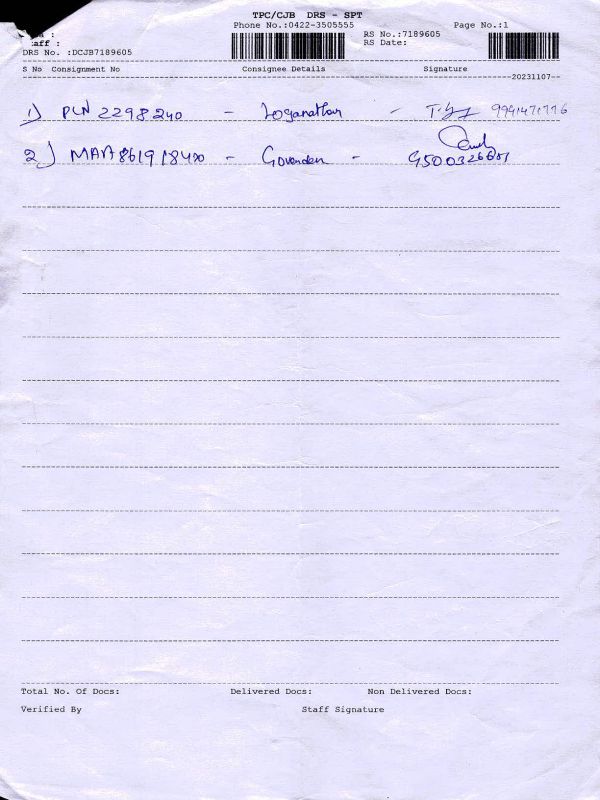 TPC/CJB DRS - SPT
Phone No.:0422-3505555 Page No.:1
RS No.:7189605
RS Date:
DRS No. :DCJB7189605
S No Consignment No Consignee Details Signature
20231107
1) PLN 2298240 - Loganathan -
2) - Govinden -
Total No. Of Docs: Delivered Docs: Non Delivered Docs:
Verified By Staff Signature